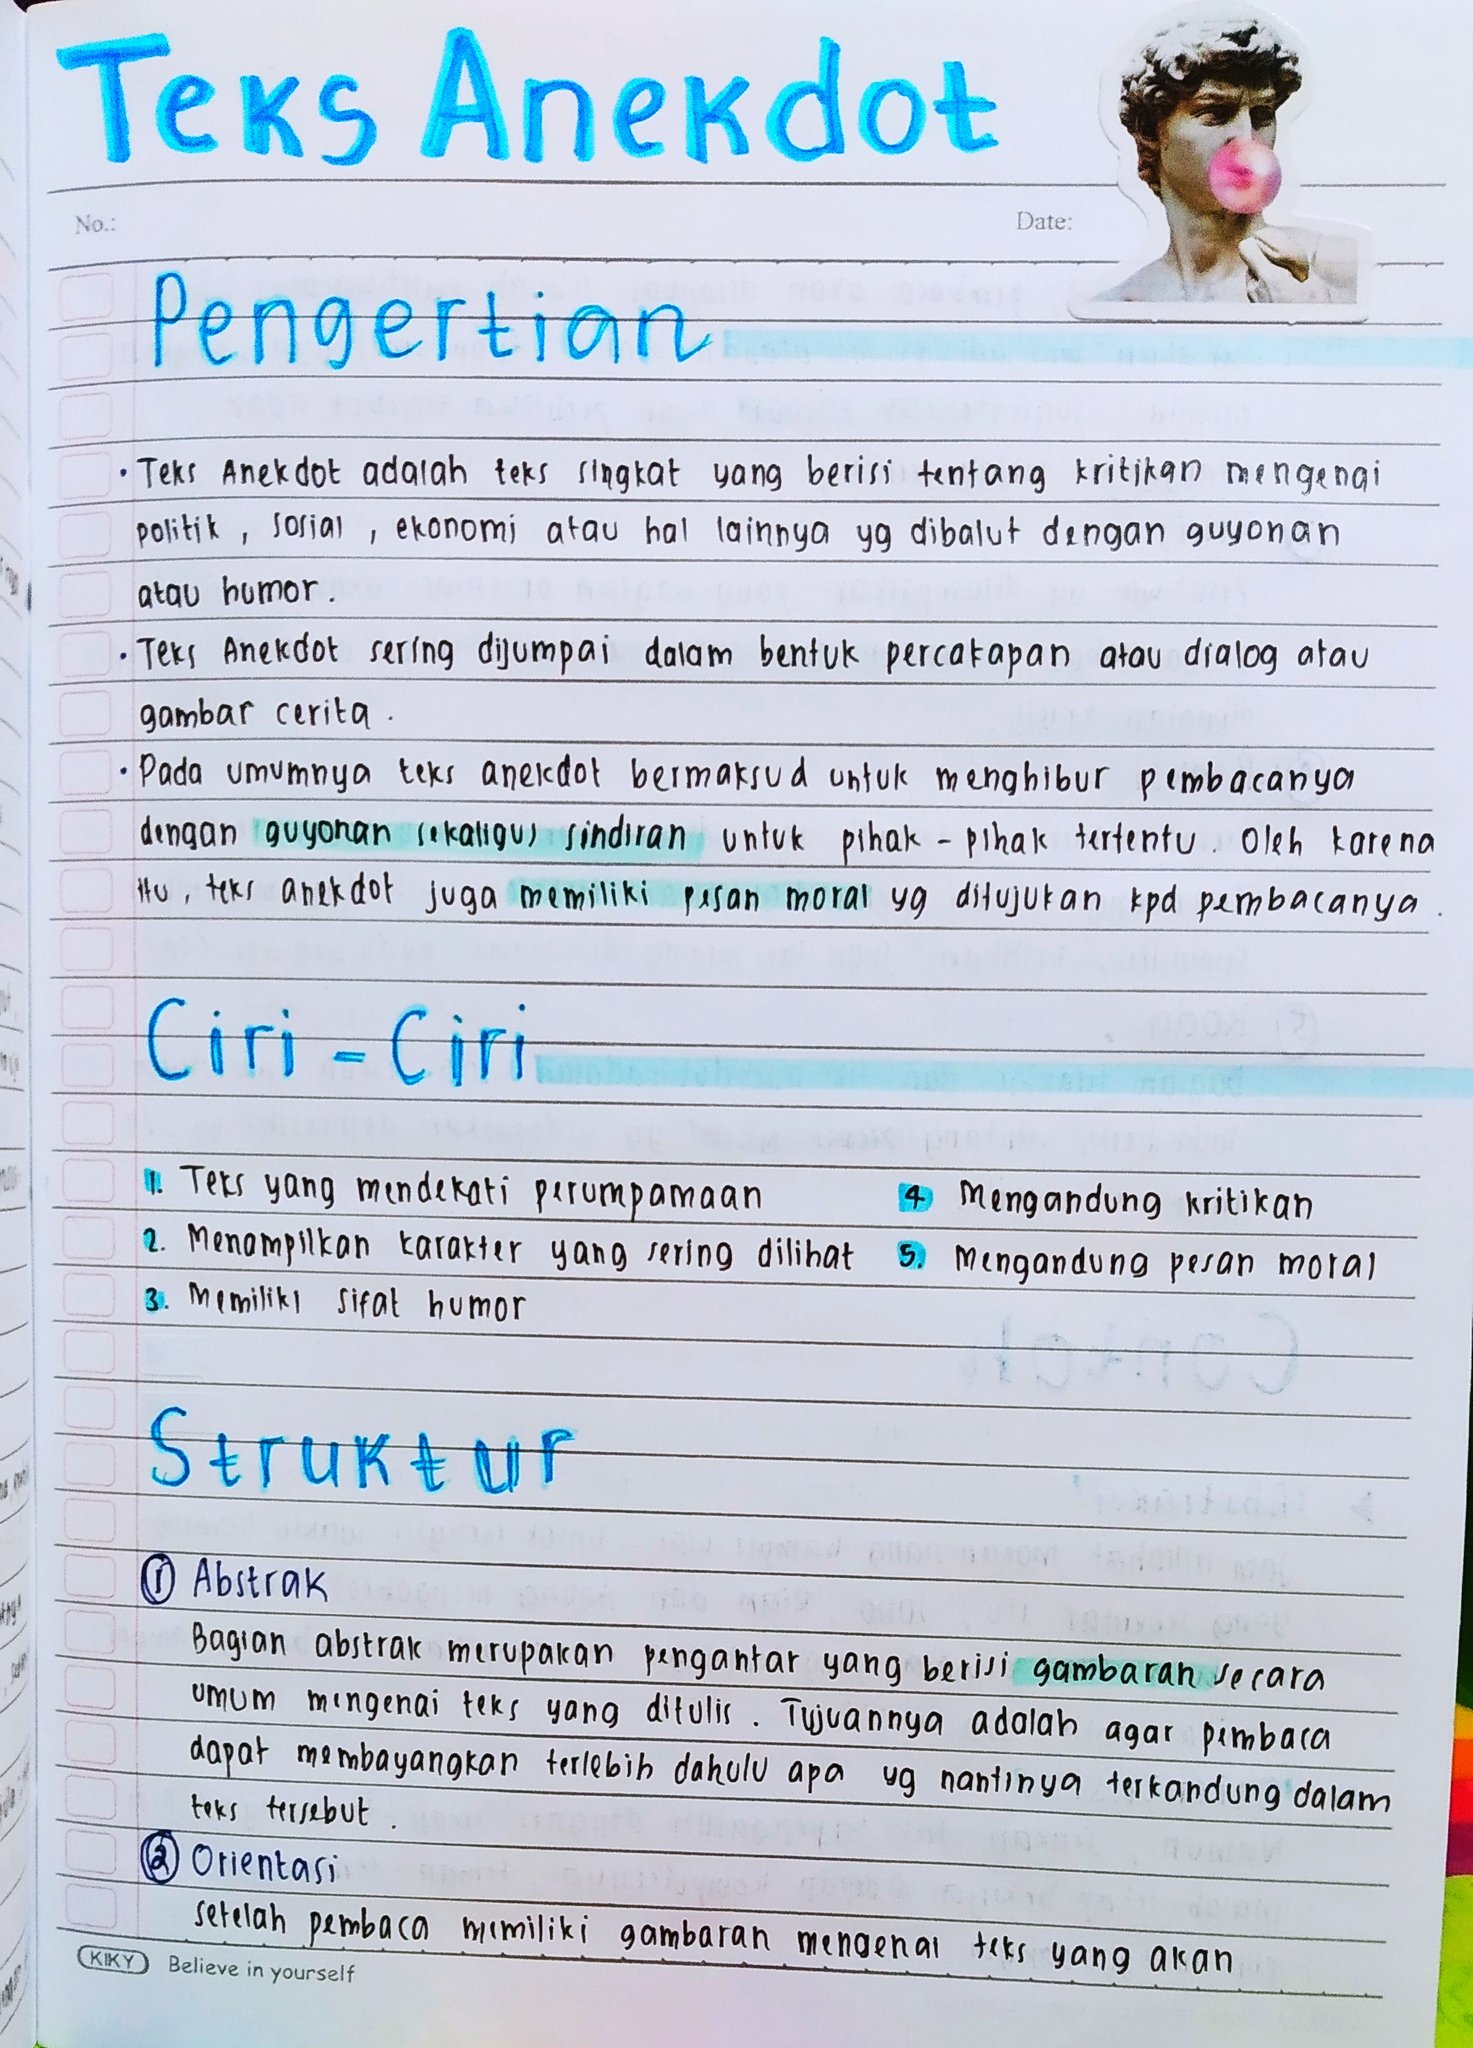 Teks Anekdot
No.:
Date:
Pengertian
• Teks Anekdot adalah teks singkat yang berisi tentang kritikan mengenai
politik, sosial, ekonomi atau hal lainnya yg dibalut dengan guyonan
atau humor.
• Teks Anekdot sering dijumpai dalam bentuk percakapan atau dialog atau
gambar cerita.
• Pada umumnya teks anekdot bermaksud untuk menghibur pembacanya
dengan guyonan sekaligus sindiran untuk pihak - pihak tertentu. Oleh karena
itu, teks anekdot juga memiliki pesan moral yg ditujukan kpd pembacanya.
Ciri - Ciri
1. Teks yang mendekati perumpamaan
2. Menampilkan karakter yang sering dilihat
3. Memiliki sifat humor
4. Mengandung kritikan
5. Mengandung pesan moral
Struktur
1 Abstrak
Bagian abstrak merupakan pengantar yang berisi gambaran secara
umum mengenai teks yang ditulis. Tujuannya adalah agar pembaca
dapat membayangkan terlebih dahulu apa yg nantinya terkandung dalam
teks tersebut.
2 Orientasi
setelah pembaca memiliki gambaran mengenai teks yang akan
KIKY Believe in yourself